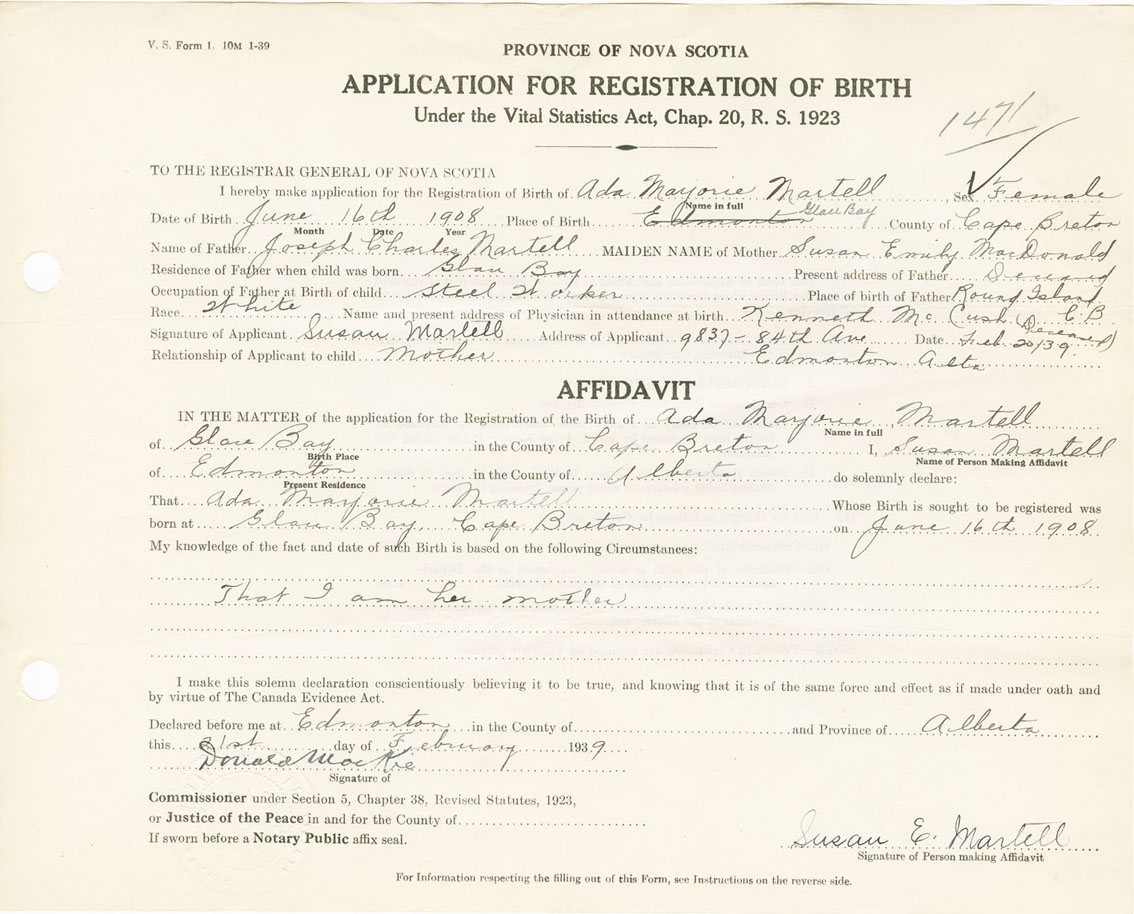 V. S. Form 1. 10M 1-39
PROVINCE OF NOVA SCOTIA
APPLICATION FOR REGISTRATION OF BIRTH
Under the Vital Statistics Act, Chap. 20, R. S. 1923
1471
TO THE REGISTRAR GENERAL OF NOVA SCOTIA
I hereby make application for the Registration of Birth of Ada Marjorie Martell, Sex Female
Name in full
Date of Birth June 16th 1908 Place of Birth Edmonton Glace Bay County of Cape Breton
Month Date Year
Name of Father Joseph Charles Martell MAIDEN NAME of Mother Susan Emily MacDonald
Residence of Father when child was born Glace Bay Present address of Father Deceased
Occupation of Father at Birth of child Steel Worker Place of birth of Father Round Island C.B.
Race White Name and present address of Physician in attendance at birth Kenneth McCush (Deceased)
Signature of Applicant Susan Martell Address of Applicant 9837-84th Ave Date Feb 20/39
Relationship of Applicant to child Mother Edmonton Alta
AFFIDAVIT
IN THE MATTER of the application for the Registration of the Birth of Ada Marjorie Martell
Name in full
of Glace Bay in the County of Cape Breton I, Susan Martell
Birth Place Name of Person Making Affidavit
of Edmonton in the County of Alberta do solemnly declare:
Present Residence
That Ada Marjorie Martell Whose Birth is sought to be registered was
born at Glace Bay, Cape Breton on June 16th 1908
My knowledge of the fact and date of such Birth is based on the following Circumstances:
That I am her mother
I make this solemn declaration conscientiously believing it to be true, and knowing that it is of the same force and effect as if made under oath and
by virtue of The Canada Evidence Act.
Declared before me at Edmonton in the County of and Province of Alberta
this 21st day of February 1939
Donald MacKie
Signature of
Commissioner under Section 5, Chapter 38, Revised Statutes, 1923,
or Justice of the Peace in and for the County of
If sworn before a Notary Public affix seal.
Susan E. Martell
Signature of Person making Affidavit
For Information respecting the filling out of this Form, see Instructions on the reverse side.